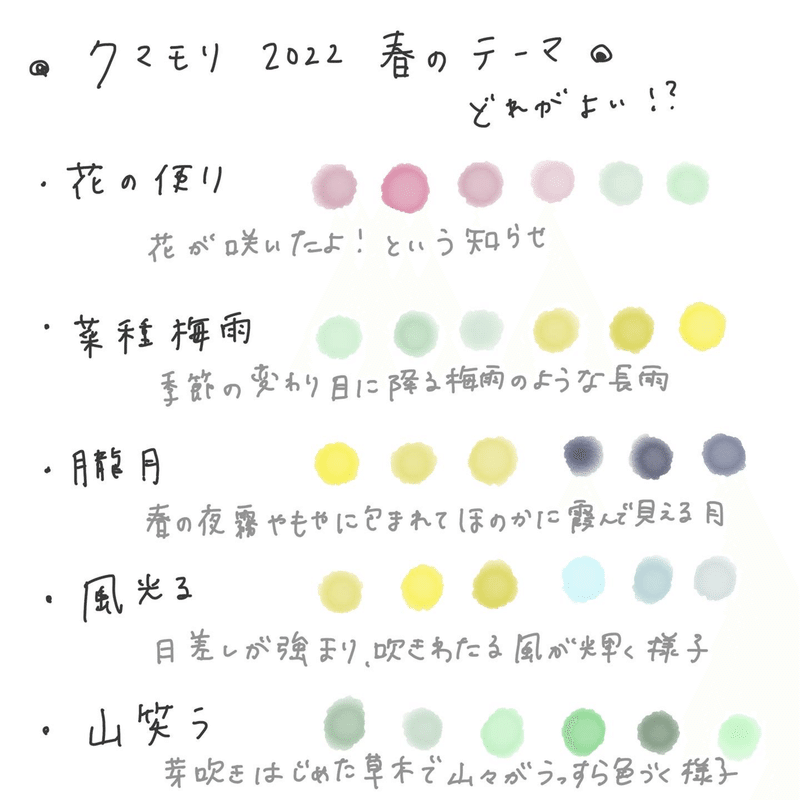 クマモリ 2022 春のテーマ
どれがよい!?
・花の便り
花が咲いたよ!という知らせ
・菜種梅雨
季節の変わり目に降る梅雨のような長雨
・朧月
春の夜霧やもやに包まれてほのかに霞んで見える月
・風光る
日差しが強まり、吹きわたる風が輝く様子
・山笑う
芽吹きはじめた草木で山々がうっすら色づく様子